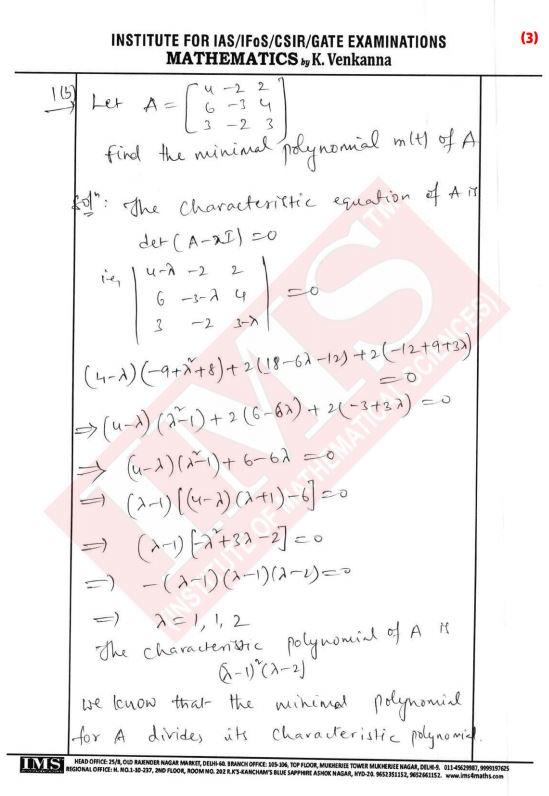 INSTITUTE FOR IAS/IFoS/CSIR/GATE EXAMINATIONS
(3)
MATHEMATICS by K. Venkanna
1(b) Let A = [4 -2 2
6 -3 4
3 -2 3]
find the minimal polynomial m(t) of A
Solⁿ: The characteristic equation of A is
det(A-λI)=0
i.e, |4-λ -2 2
6 -3-λ 4
3 -2 3-λ| =0
(4-λ)(-9+λ²+8)+2(18-6λ-12)+2(-12+9+3λ)
=0
⇒(4-λ)(λ²-1)+2(6-6λ)+2(-3+3λ)=0
⇒ (4-λ)(λ²-1)+6-6λ=0
⇒ (λ-1)[(4-λ)(λ+1)-6]=0
⇒ (λ-1)[-λ²+3λ-2]=0
⇒ -(λ-1)(λ-1)(λ-2)=0
⇒ λ=1,1,2
The characteristic polynomial of A is
(λ-1)²(λ-2)
we know that the minimal polynomial
for A divides its characteristic polynomial.
IMS TM
(INSTITUTE OF MATHEMATICAL SCIENCES)
IMS
INSTITUTE OF MATHEMATICAL SCIENCES
HEAD OFFICE: 25/8, OLD RAJENDER NAGAR MARKET, DELHI-60. BRANCH OFFICE: 105-106, TOP FLOOR, MUKHERJEE TOWER MUKHERJEE NAGAR, DELHI-9. 011-45629987, 9999197625
REGIONAL OFFICE: H. NO.1-10-237, 2ND FLOOR, ROOM NO. 202 R.K'S-KANCHAM'S BLUE SAPPHIRE ASHOK NAGAR, HYD-20. 9652351152, 9652661152. www.ims4maths.com